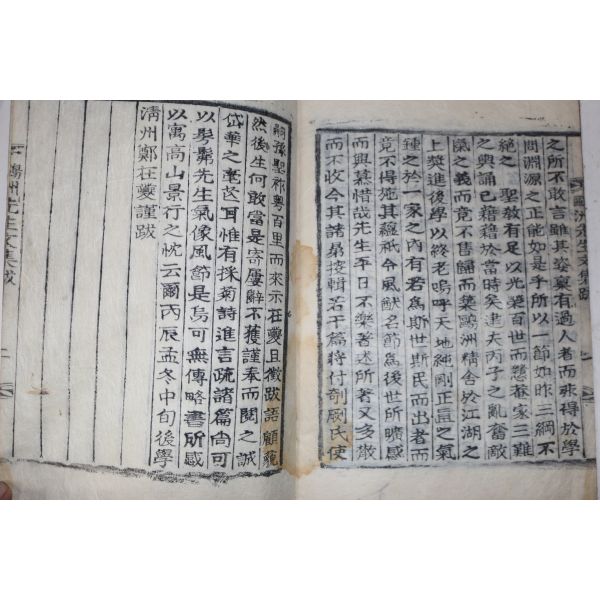 之所不敢言雖其姿稟有過人者而非得於學
問淵源之正能如是乎所以一節如昨三綱不
絶之 聖教有足以光榮百世而慈養家三難
之輿誦已藉藉於當時矣逮夫丙子之亂奮敵
愾之義而竟不售歸而築鷗洲精舍於江湖之
上奬進後學以終老嗚呼天地純剛正直之氣
鍾之於一家之內有若爲斯世斯民而出者而
竟不得施其纏祇令風猷名節爲後世所曠感
而興慕惜哉先生平日不樂著述所著又多散
而不收今其諸昴掇輯若干篇將付剞劂氏使
嗣孫聖祚粤百里而來示在夔且徵跋語顧藐
然後生何敢當是寄屢辭不獲謹奉而閱之誠
岱華之毫芒耳惟有採菊詩進言疏諸篇尙可
以髣髴先生氣像風節是烏可無傳略書所感
以寓高山景行之忱云爾丙辰孟冬中旬後學
淸州鄭在夔謹跋
鷗洲先生文集跋